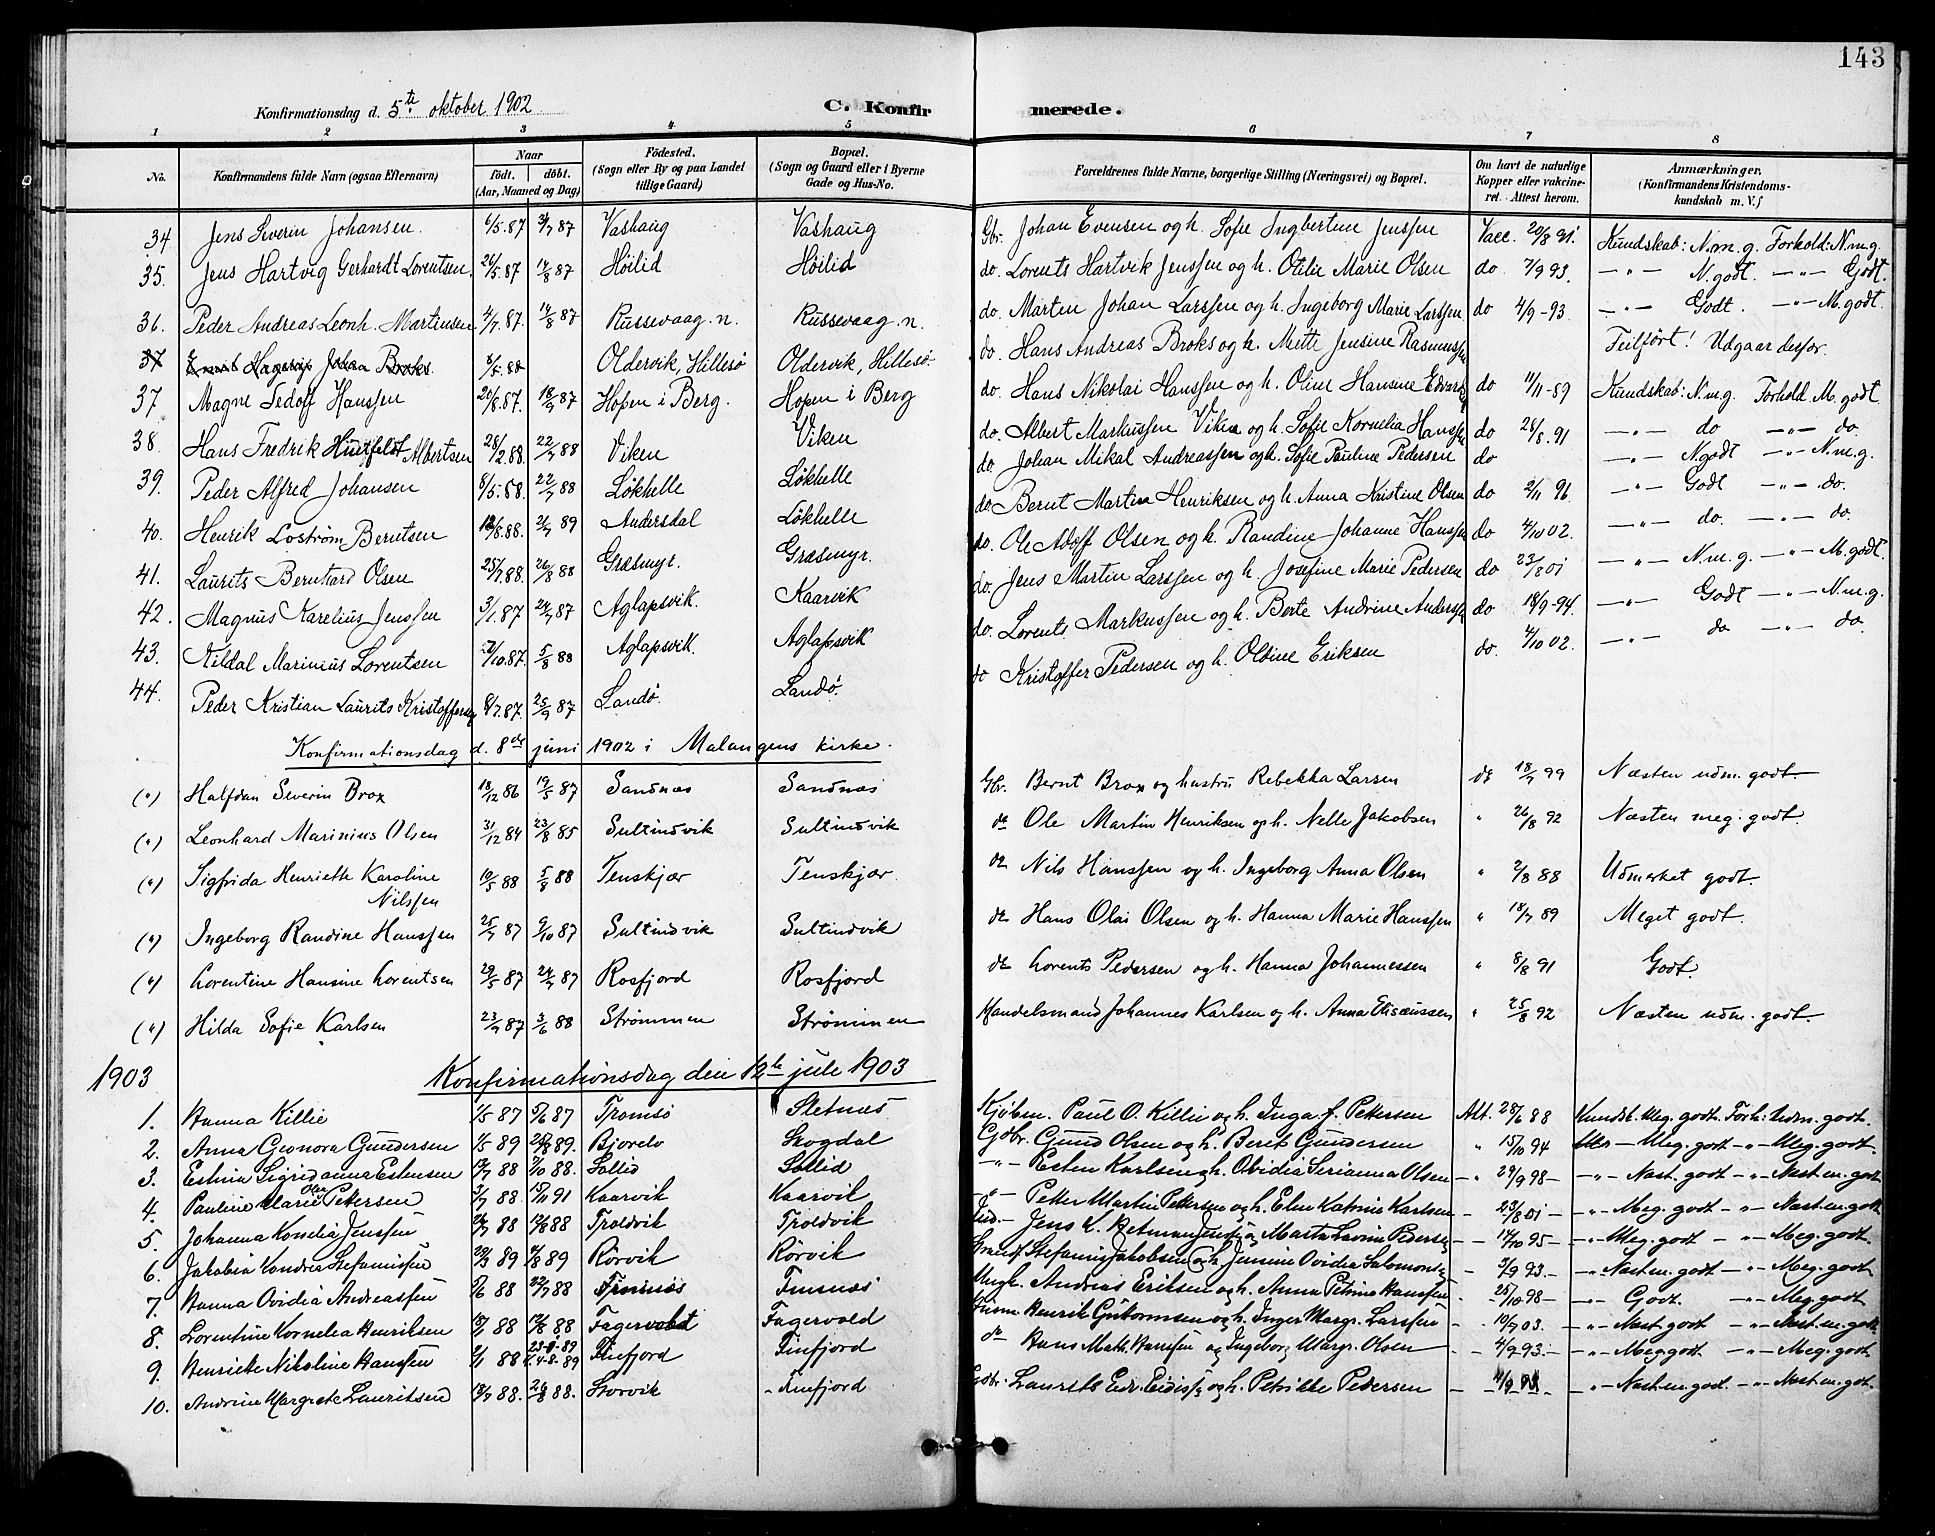 143
Konfirmationsdag d. 5te oktober 1902 C. Konfirmerede.
1 2 3 4 5 6 7 8
No. Konfirmandens fulde Navn (ogsaa Efternavn) Naar födt. döbt. (Aar, Maaned og Dag) Födested. (Sogn eller By og paa Landet tillige Gaard) Bopæl. (Sogn og Gaard eller i Byerne Gade og Hus-No. Forældrenes fulde Navne, borgerlige Stilling (Næringsvei) og Bopæl. Om havt de naturlige Kopper eller vakcineret. Attest herom. Anmærkninger. (Konfirmandens Kristendomskundskab m. V.)
34 Jens Severin Johansen. 6/5.87 87 Vashaug Vashaug Gbr. Johan Evensen og h. Sofie Ingbertine Jenssen Vacc. 20/8 91. Kundskab: N.m.g. Forhold: N.m.g.
35. Jens Hartvig Gerhardt Lorentsen. 26/5.87 14/8 87 Höilid Höilid do. Lorents Hartvik Jenssen og h. Otilie Marie Olsen do 7/9 93. —"— N.godt. —"— Godt.
36. Peder Andreas Leonh. Martinsen 4/7.87. 14/8 87 Russevaag.n. Russevaag.n. do. Marten Johan Larssen og h. Ingeborg Marie Larssen do 4/9-93. —"— Godt. —"— M.godt.
37 Hagerup Johan Broks. 88 Oldervik, Hillesö Oldervik, Hillesö. do. Hans Andreas Broks og h. Mette Jensine Rasmussen Feilfört! Udgaar derfor.
37. Magne Sedolf Hanssen 20/8.87. 18/9 87 Hopen i Berg. Hopen i Berg do. Hans Nikolai Hanssen og h. Oline Hansine do 11/11-89 Kundskab: N.m.g. Forhold. M.godt.
38. Hans Fredrik Huitfeldt Albertsen 28/2.88. 22/7 88 Viken Viken do. Albert Markussen Viken og h. Sofie Kornelia Hanssen do 28/8.91 —"— do —"— do.
39. Peder Alfred Johansen 8/5.88. 22/7 88 Lökhelle Lökhelle do. Johan Mikal Andreassen og h. Sofie Pauline Pedersen do —"— N.godt —"— N.m.g.
40. Henrik Loström Berntsen /8.88. 2/7 89 Andersdal Lökhelle do. Bernt Martin Henriksen og h. Anna Kristine Olsen do 2/11 96. —"— Godt —"— do.
41. Laurits Bernhard Olsen 25/7.88. 26/8 88 Græsmyr. Græsmyr. do. Ole Adolf Olsen og h. Randine Johanne Hanssen do 4/10 02. —"— do. —"— do.
42. Magnus Karelius Jenssen 3/1.87 24/7 87 Aglapsvik. Kaarvik do. Jens Martin Larssen og h. Josefine Marie Pedersen do 23/8 01 —"— N.m.g. —"— M.godt
43. Kildal Marinius Lorentsen /10.87. 5/8 88 Aglapsvik. Aglapsvik do. Lorents Markussen og h. Berte Andrine do 18/9-94. —"— Godt —"— N.m.g.
44. Peder Kristian Laurits Kristoffersen 8/7.87. 25/9 87 Landö. Landö. do Kristoffer Pedersen og h. Oldine Eriksen do. 4/10 02. —"— do —"— do.
Konfirmationsdag d. 8de juni 1902 i Malangens kirke.
(") Halfdan Severin Brox 18/12 86 19/5 87 Sandnæs Sandnæs Gbr. Bernt Brox og hustru Rebekka Larsen do 18/7 99 Næsten udm. godt.
(") Leonhard Marinius Olsen 31/12 84 23/8 85 Sultindvik Sultindvik do Ole Martin Henriksen og h. Nelle Jakobsen " 26/8 92 Næsten meg. godt.
(") Sigfrida Henriette Karoline Nilssen 10/5 88 5/8 88 Tenskjær Tenskjær do Nils Hanssen og h. Ingeborg Anna Olsen " 2/8 88 Udmerket godt.
(") Ingeborg Randine Hanssen 25/7 87 9/10 87 Sultindvik Sultindvik do Hans Olai Olsen og h. Hanna Marie Hanssen " 18/7 89 Meget godt.
(") Lorentine Hansine Lorentsen 29/5 87 24/7 87 Rosfjord Rosfjord do Lorents Pedersen og h. Hanna Johannessen " 8/8 91 Godt.
(") Hilda Sofie Karlsen 23/7 87 3/6 88 Strømmen Strømmen Handelsmand Johannes Karlsen og h. Anna Elisæussen " 25/8 92 Næsten udm. godt.
1903 Konfirmationsdag den 12te jule 1903
1. Hanna Killie 1/5 87 5/6 87 Tromsö Sletnæs Kjöbm. Paul O. Killie og h. Inga f. Pettersen Att. 28/6 88 Kundsk. Meg. godt. Forh: Udm. godt.
2. Anna Geonora Gundersen 1/5 89 25/8 89. Bjorelv Skogdal Gdbr. Gund Olsen og h. Berit Gundersen " 15/10 94 Meg. godt —"— Meg. godt.
3. Estina Sigridanna Estensen 19/7 88 7/10 88. Sollid Sollid —"— Esten Karlsen og h. Ovidia Serianna Olsen " 29/9 98 —"— Næst. godt —"— Næst m. godt
4. Pauline Marie Pettersen 3/7 88. 15/11 91 Kaarvik Kaarvik " Petter Martin Pettersen og h. Elen Katrine Karlsen — 23/8 01 —"— Meg. godt —"— Næst. m. godt
5. Johanna Kornelia Jenssen 24/7 88 12/8 88 Troldvik Troldvik Ind.— Jens L. Hetman og Marta Lovine Pedersen — 17/10 95 —"— Meg. godt —"— Meg. godt.
6. Jakobia Kondrea Stefanussen 20/3 89 4/8 89 Rörvik Rörvik Stefanus Jakobsen og h. Jenine Ovidia — 3/9 93. —"— Næst m. godt —"— Meg. godt
7. Hanna Ovidia Andreassen 5/6 88 22/7 88 Finsnæs Finsnæs Ungk. Andreas Eriksen og h. Anna Petrine Hanssen — 25/10 98 —"— Godt. —"— Meg. godt
8. Lorentine Kornelia Henriksen 15/1 88 12/8 88 Fagervold Fagervold Husm. Henrik Guttormsen og h. Inger Margr. Larssen — 10/7 03. —"— Næst. godt —"— Næst. m. godt
9. Henriette Nikoline Hanssen 2/1 88 4-8-89 Finfjord Finfjord do Hans Math. Hanssen og Ingeborg Margr. Olsen — 4/9 93. —"— Meg godt —"— Meg. godt.
10. Andrine Margrete Lauritsen 13/7 88. 26/8 88. Storvik Finfjord Gdbr. Laurits Edv. og h. Petrikke Pedersen —"— Næst. m. god. —"— Næst. m. godt.